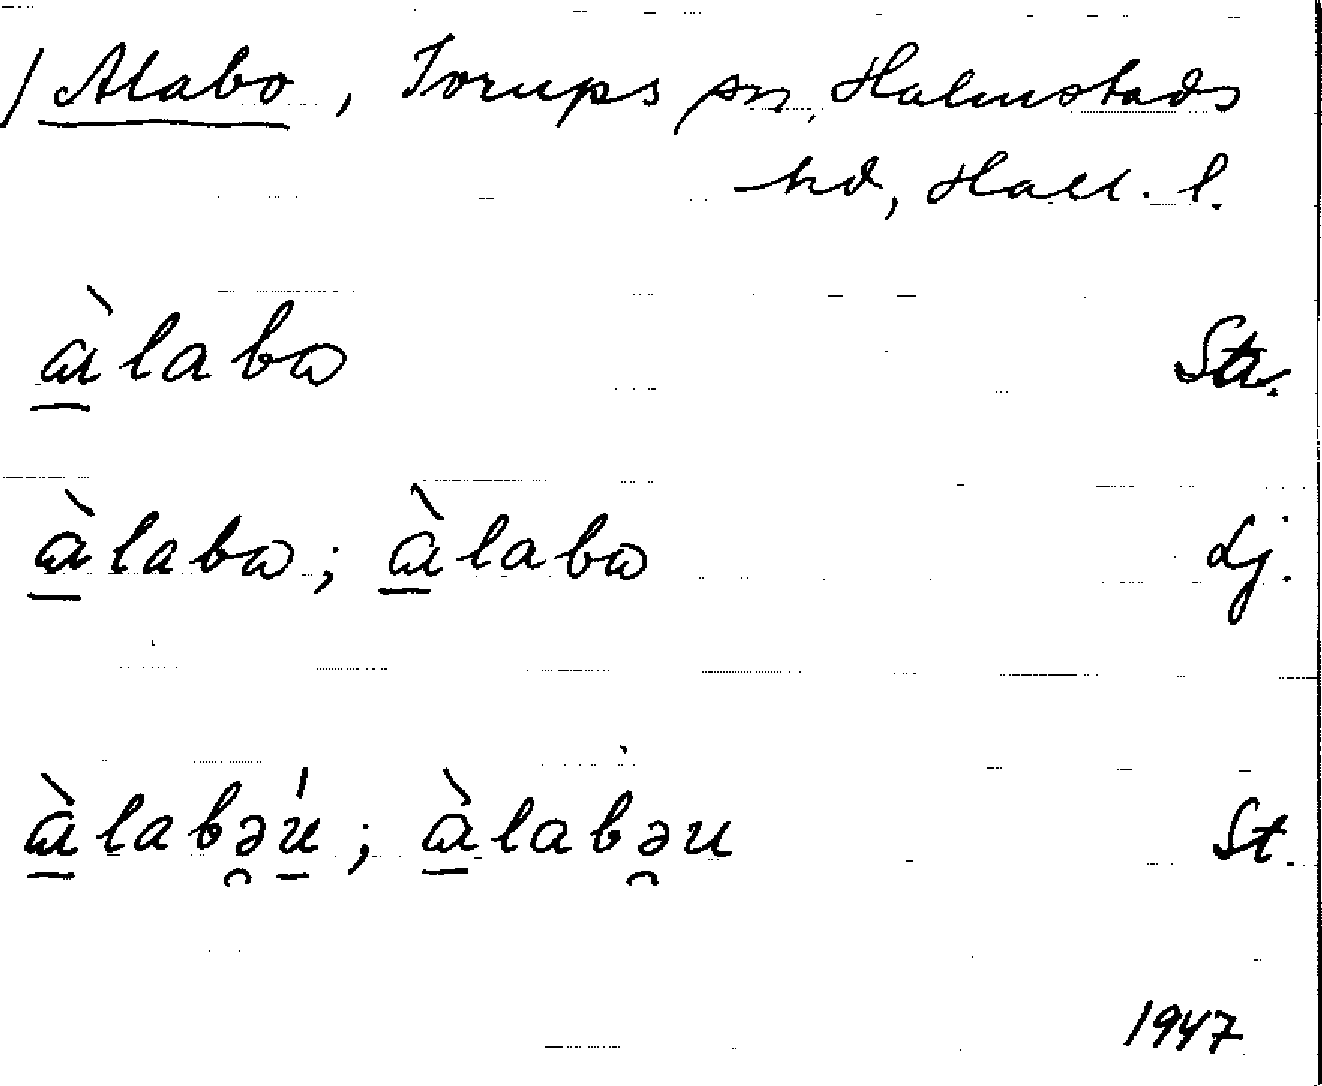 / Alabo, Torups sn, Halmstads
hd, Hall. l.
ɑ̀labɷ Str.
ɑ̀labɷ; ɑ̀labɷ Lj.
ɑ̀labə̯ú; ɑ̀labə̯u St.
1947